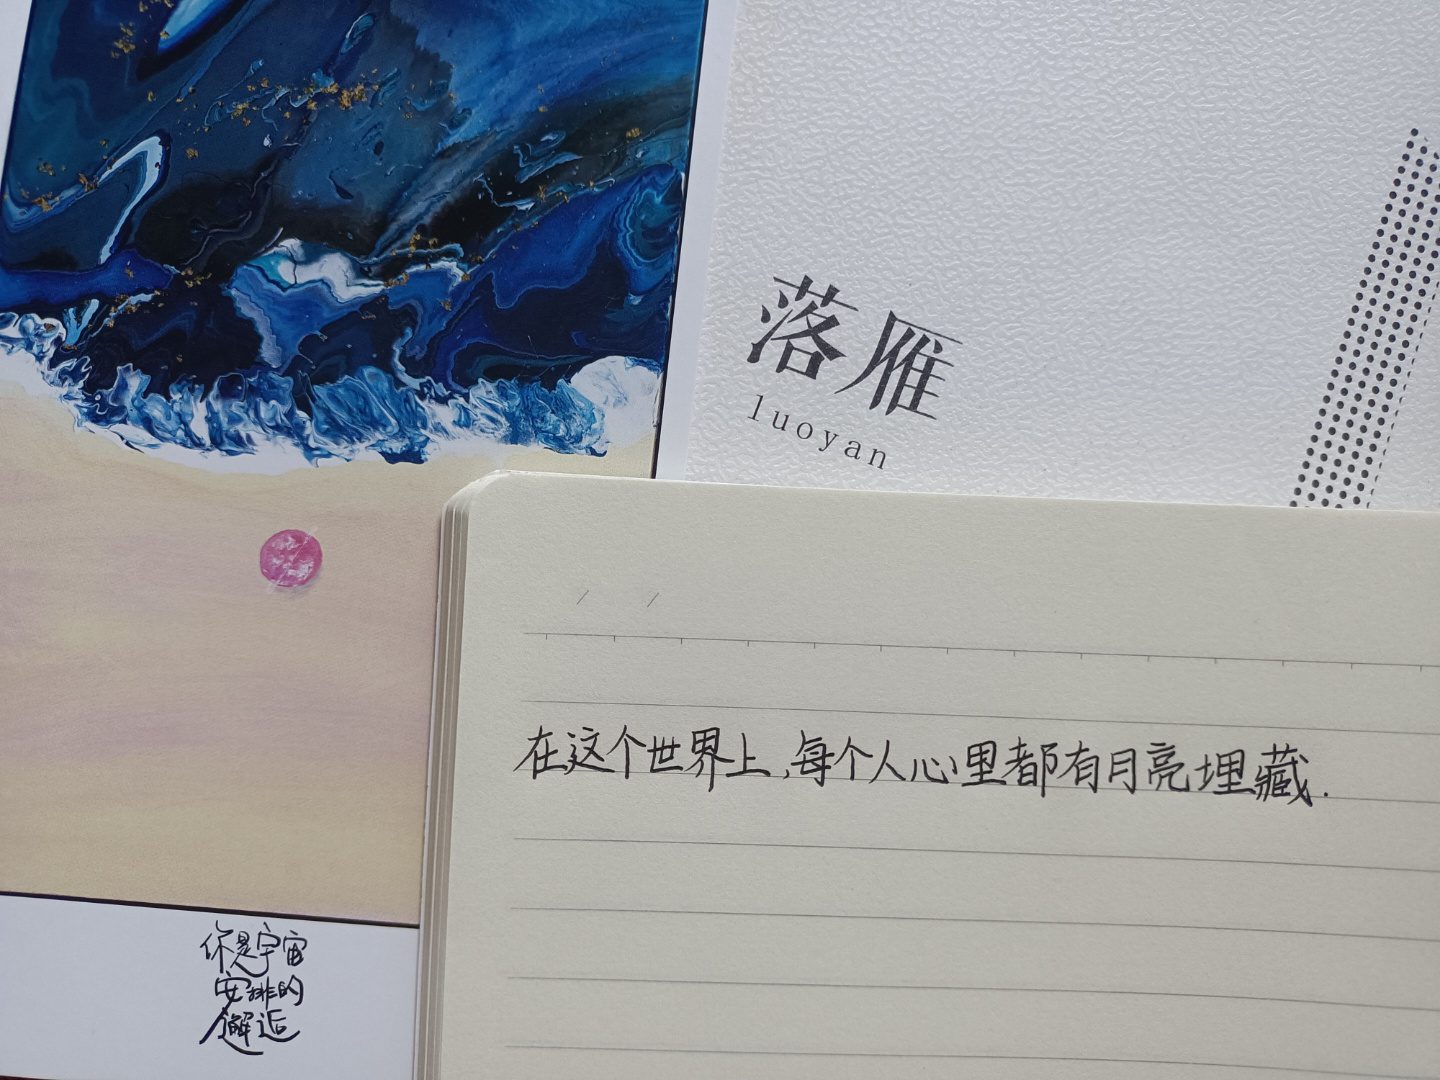 落雁
luoyan
在这个世界上,每个人心里都有月亮埋藏.
你是宇宙
安排的
邂逅